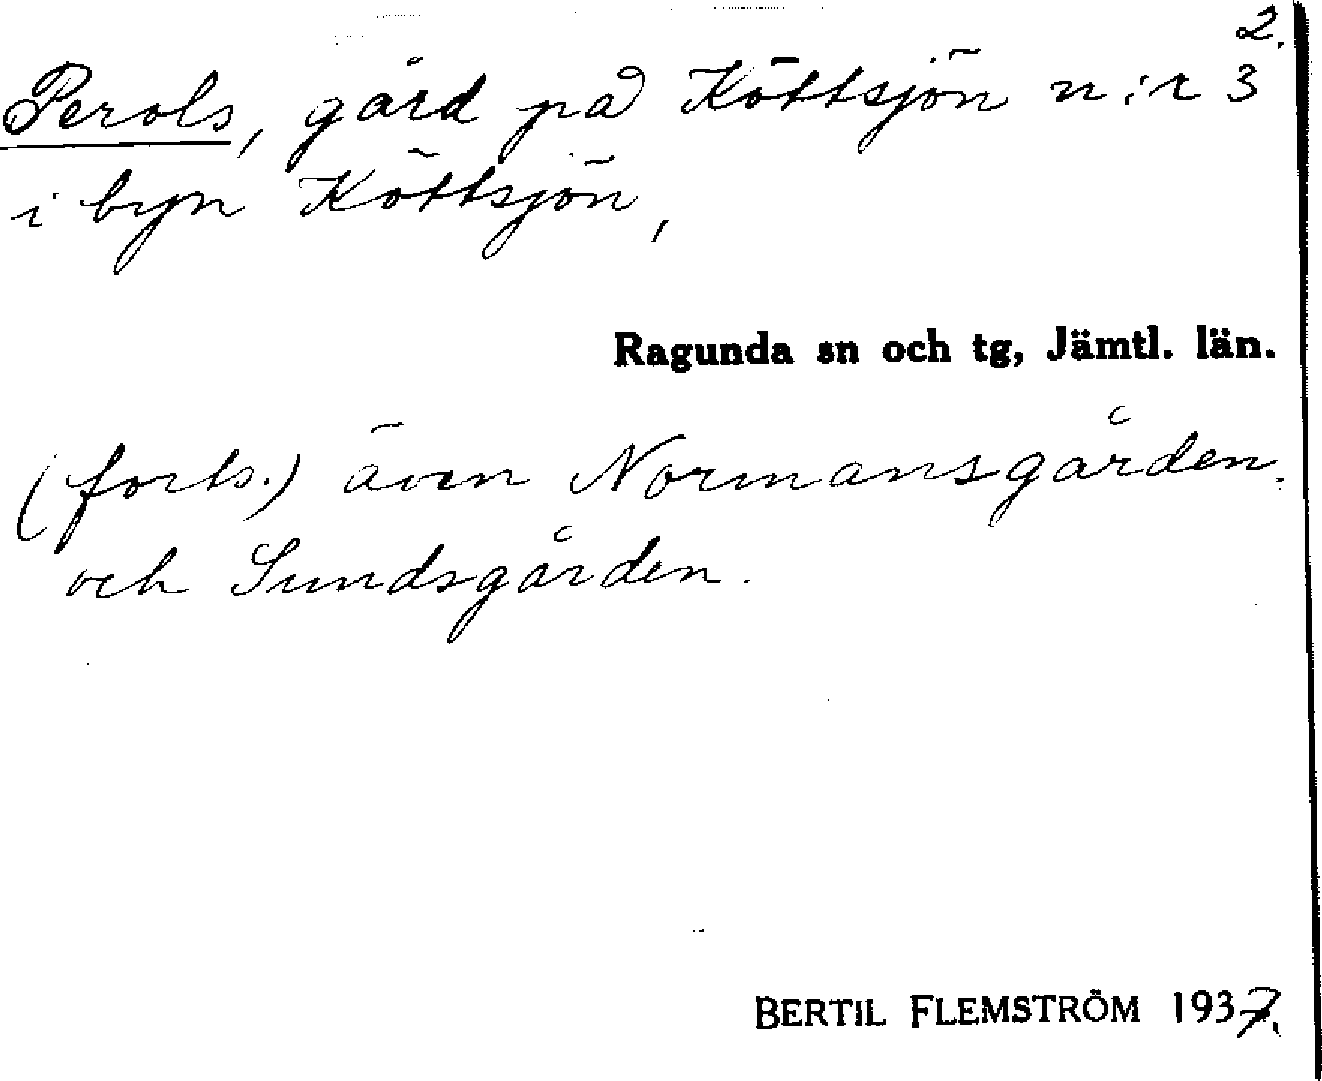 2.
Perols, gård på Köttsjön n:r 3
i byn Köttsjön,
Ragunda sn och tg, Jämtl. län.
(forts.) även Normansgården.
och Sundsgården.
BERTIL FLEMSTRÖM 1937.